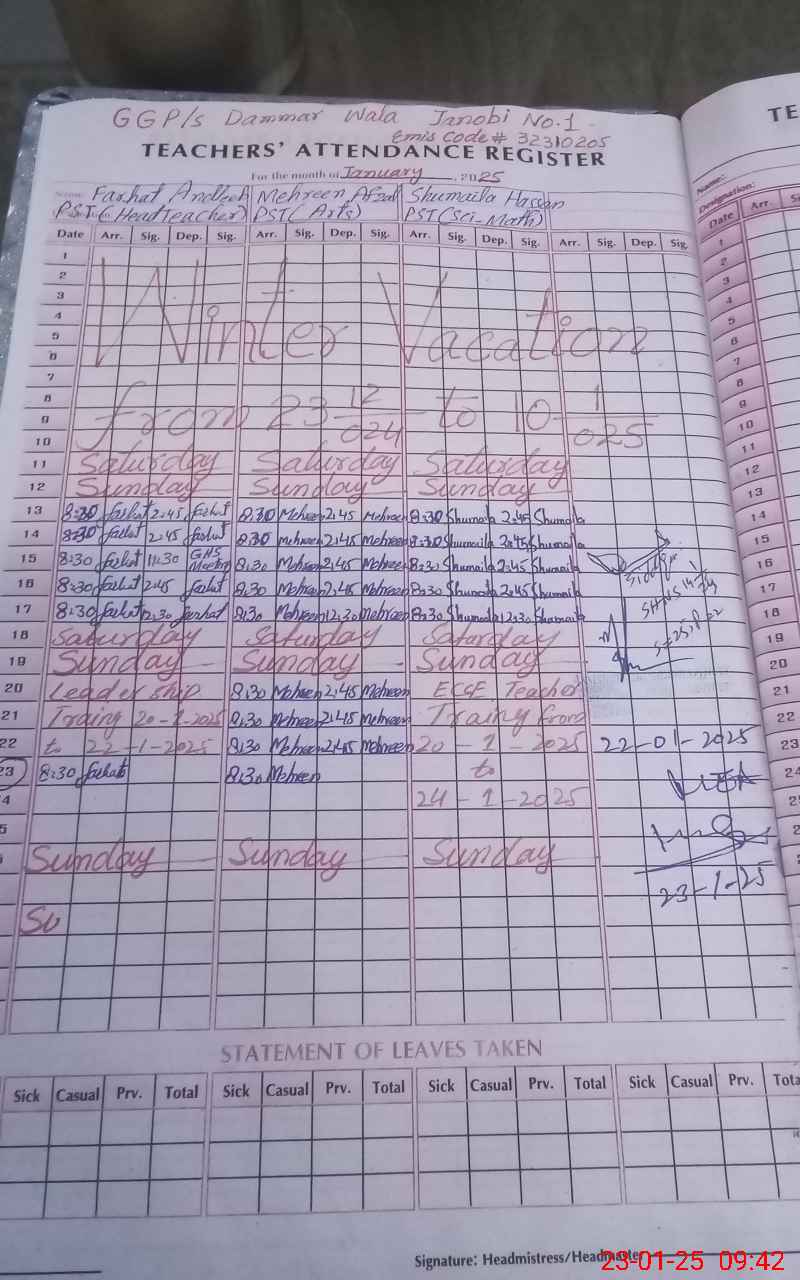 GGP/s Dammar Wala Janobi No.1
Emis Code # 32310205
TEACHERS' ATTENDANCE REGISTER
For the month of January, 2025
Name: Farhat Andleeb Mehreen Afzal Shumaila Hassan
PST (HeadTeacher) PST (Arts) PST (Sci-Math)
Date Arr. Sig. Dep. Sig. Arr. Sig. Dep. Sig. Arr. Sig. Dep. Sig. Arr. Sig. Dep. Sig.
1
2
3
4
5
6
Winter Vacation
7
8
9
from 23 12/024 to 10 1/025
10
11 Saturday Saturday Saturday
12 Sunday Sunday Sunday
13 8:30 Farhat 2:45 Farhat 8:30 Mehreen 2:45 Mehreen 8:30 Shumaila 2:45 Shumaila
14 8:30 Farhat 2:45 Farhat 8:30 Mehreen 2:45 Mehreen 8:30 Shumaila 2:45 Shumaila
15 8:30 Farhat 11:30 GHS Meeting 8:30 Mehreen 2:45 Mehreen 8:30 Shumaila 2:45 Shumaila
16 8:30 Farhat 2:45 Farhat 8:30 Mehreen 2:45 Mehreen 8:30 Shumaila 2:45 Shumaila
17 8:30 Farhat 12:30 Farhat 8:30 Mehreen 12:30 Mehreen 8:30 Shumaila 12:30 Shumaila
18 Saturday Saturday Saturday
19 Sunday Sunday Sunday
20 Leader ship 8:30 Mehreen 2:45 Mehreen ECSE Teacher
21 Traing 20-1-2025 8:30 Mehreen 2:45 Mehreen Traing from
22 to 22-1-2025 8:30 Mehreen 2:45 Mehreen 20-1-2025 22-01-2025
23 8:30 Farhat 8:30 Mehreen to
4 24-1-2025
5
Sunday Sunday Sunday
23-1-25
Su
STATEMENT OF LEAVES TAKEN
Sick Casual Prv. Total Sick Casual Prv. Total Sick Casual Prv. Total Sick Casual Prv. Tota
Signature: Headmistress/Headmaster
23-01-25 09:42
TE
Name:
Designation:
Date Arr. S
1
2
3
4
5
6
7
8
9
10
11
12
13
14
15
16
17
18
19
20
21
22
23
24
25
2